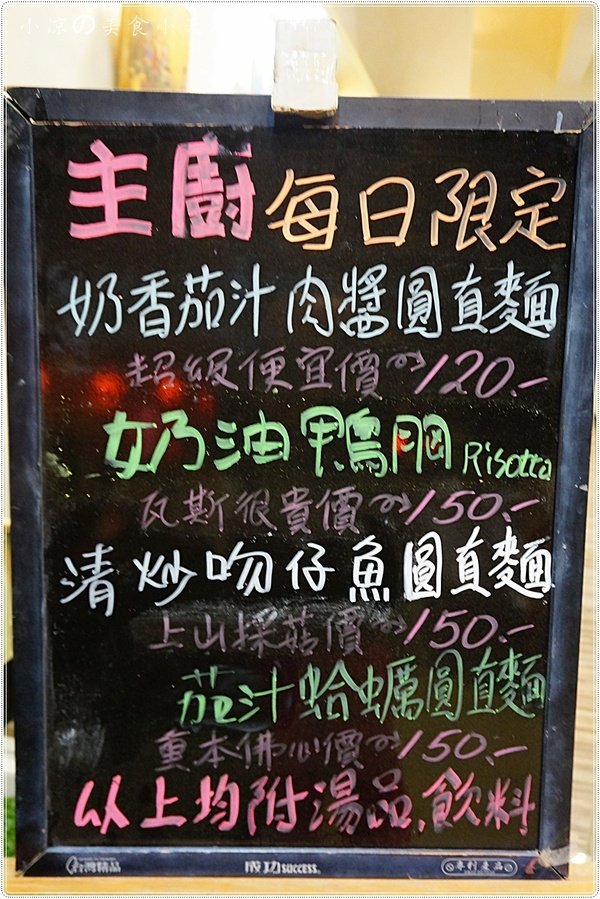 小涼の美食小天
主廚 每日限定
奶香茄汁肉醬圓直麵
超級便宜價~120.-
奶油鴨胭 Risotta
瓦斯很貴價~150.-
清炒吻仔魚圓直麵
上山採菇價~150.-
茄汁蛤蠣圓直麵
重本佛心價~150.-
以上均附湯品.飲料
台灣精品
成功 SUCCESS.
專利產品